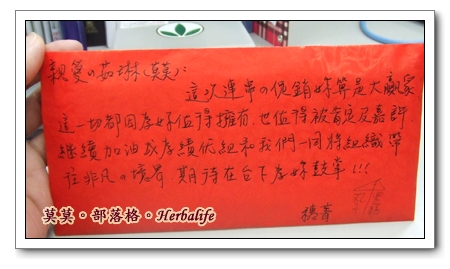 親愛の茹琳(莫莫):
這次連串の促銷妳算是大贏家
這一切都因為妳值得擁有,也值得被肯定及嘉許
繼續加油以全績优組和我們一同將組織帶
往非凡の境界,期待在台下為妳鼓掌!!!
莫莫。部落格。Herbalife